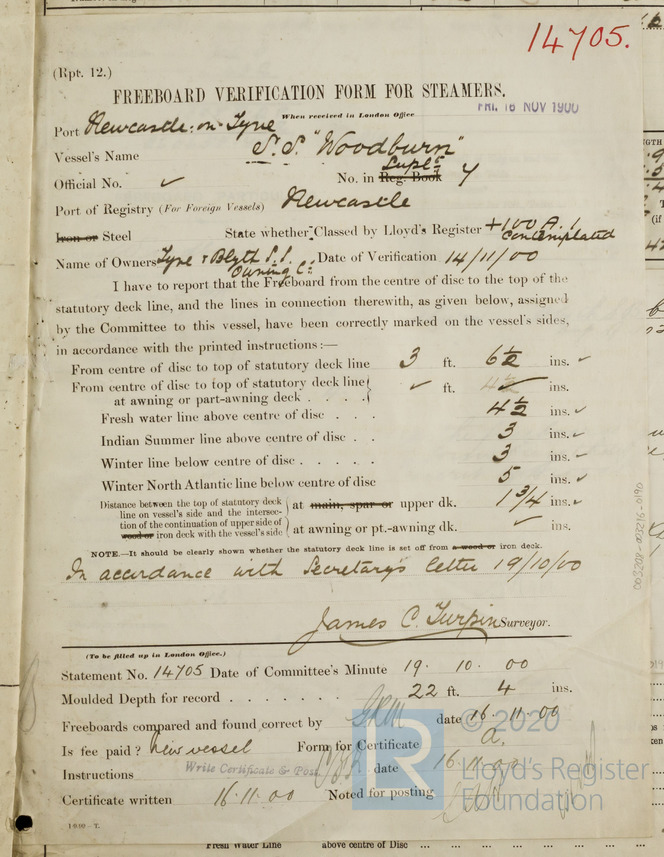 14705.
(Rpt. 12.)
FREEBOARD VERIFICATION FORM FOR STEAMERS.
When received in London Office
FRI. 16 NOV 1900
Port Newcastle-on-Tyne
Vessel's Name S.S. "Woodburn"
Official No. ✓ No. in Reg. Book Suplt 4
Port of Registry (For Foreign Vessels) Newcastle
Iron or Steel State whether Classed by Lloyd's Register +100 A.1 Contemplated
Name of Owners Tyne & Blyth S.S. Owning Co. Date of Verification 14/11/00
I have to report that the Freeboard from the centre of disc to the top of the
statutory deck line, and the lines in connection therewith, as given below, assigned
by the Committee to this vessel, have been correctly marked on the vessel's sides,
in accordance with the printed instructions:—
From centre of disc to top of statutory deck line 3 ft. 6½ ins. ✓
From centre of disc to top of statutory deck line
at awning or part-awning deck . . . . ✓ ft. ins.
Fresh water line above centre of disc . . . 4½ ins. ✓
Indian Summer line above centre of disc . . 3 ins. ✓
Winter line below centre of disc . . . . . 3 ins. ✓
Winter North Atlantic line below centre of disc 5 ins. ✓
Distance between the top of statutory deck
line on vessel's side and the intersec-
tion of the continuation of upper side of
wood or iron deck with the vessel's side
at main, spar or upper dk. 1¾ ins. ✓
at awning or pt.-awning dk. ✓ ins.
NOTE.—It should be clearly shown whether the statutory deck line is set off from a wood or iron deck.
In accordance with Secretary's letter 19/10/00
James C. Turpin Surveyor.
(To be filled up in London Office.)
Statement No. 14705 Date of Committee's Minute 19. 10. 00
Moulded Depth for record . . . . . . . 22 ft. 4 ins.
Freeboards compared and found correct by date 16.11.00
Is fee paid? New vessel Form for Certificate a.
Instructions Write Certificate & Post date 16.11.00
Certificate written 16.11.00 Noted for posting
1800—T.
© 2020
Lloyd's Register
Foundation
LR
003208-003216-0190
Fresh Water Line above centre of Disc ... ... ...